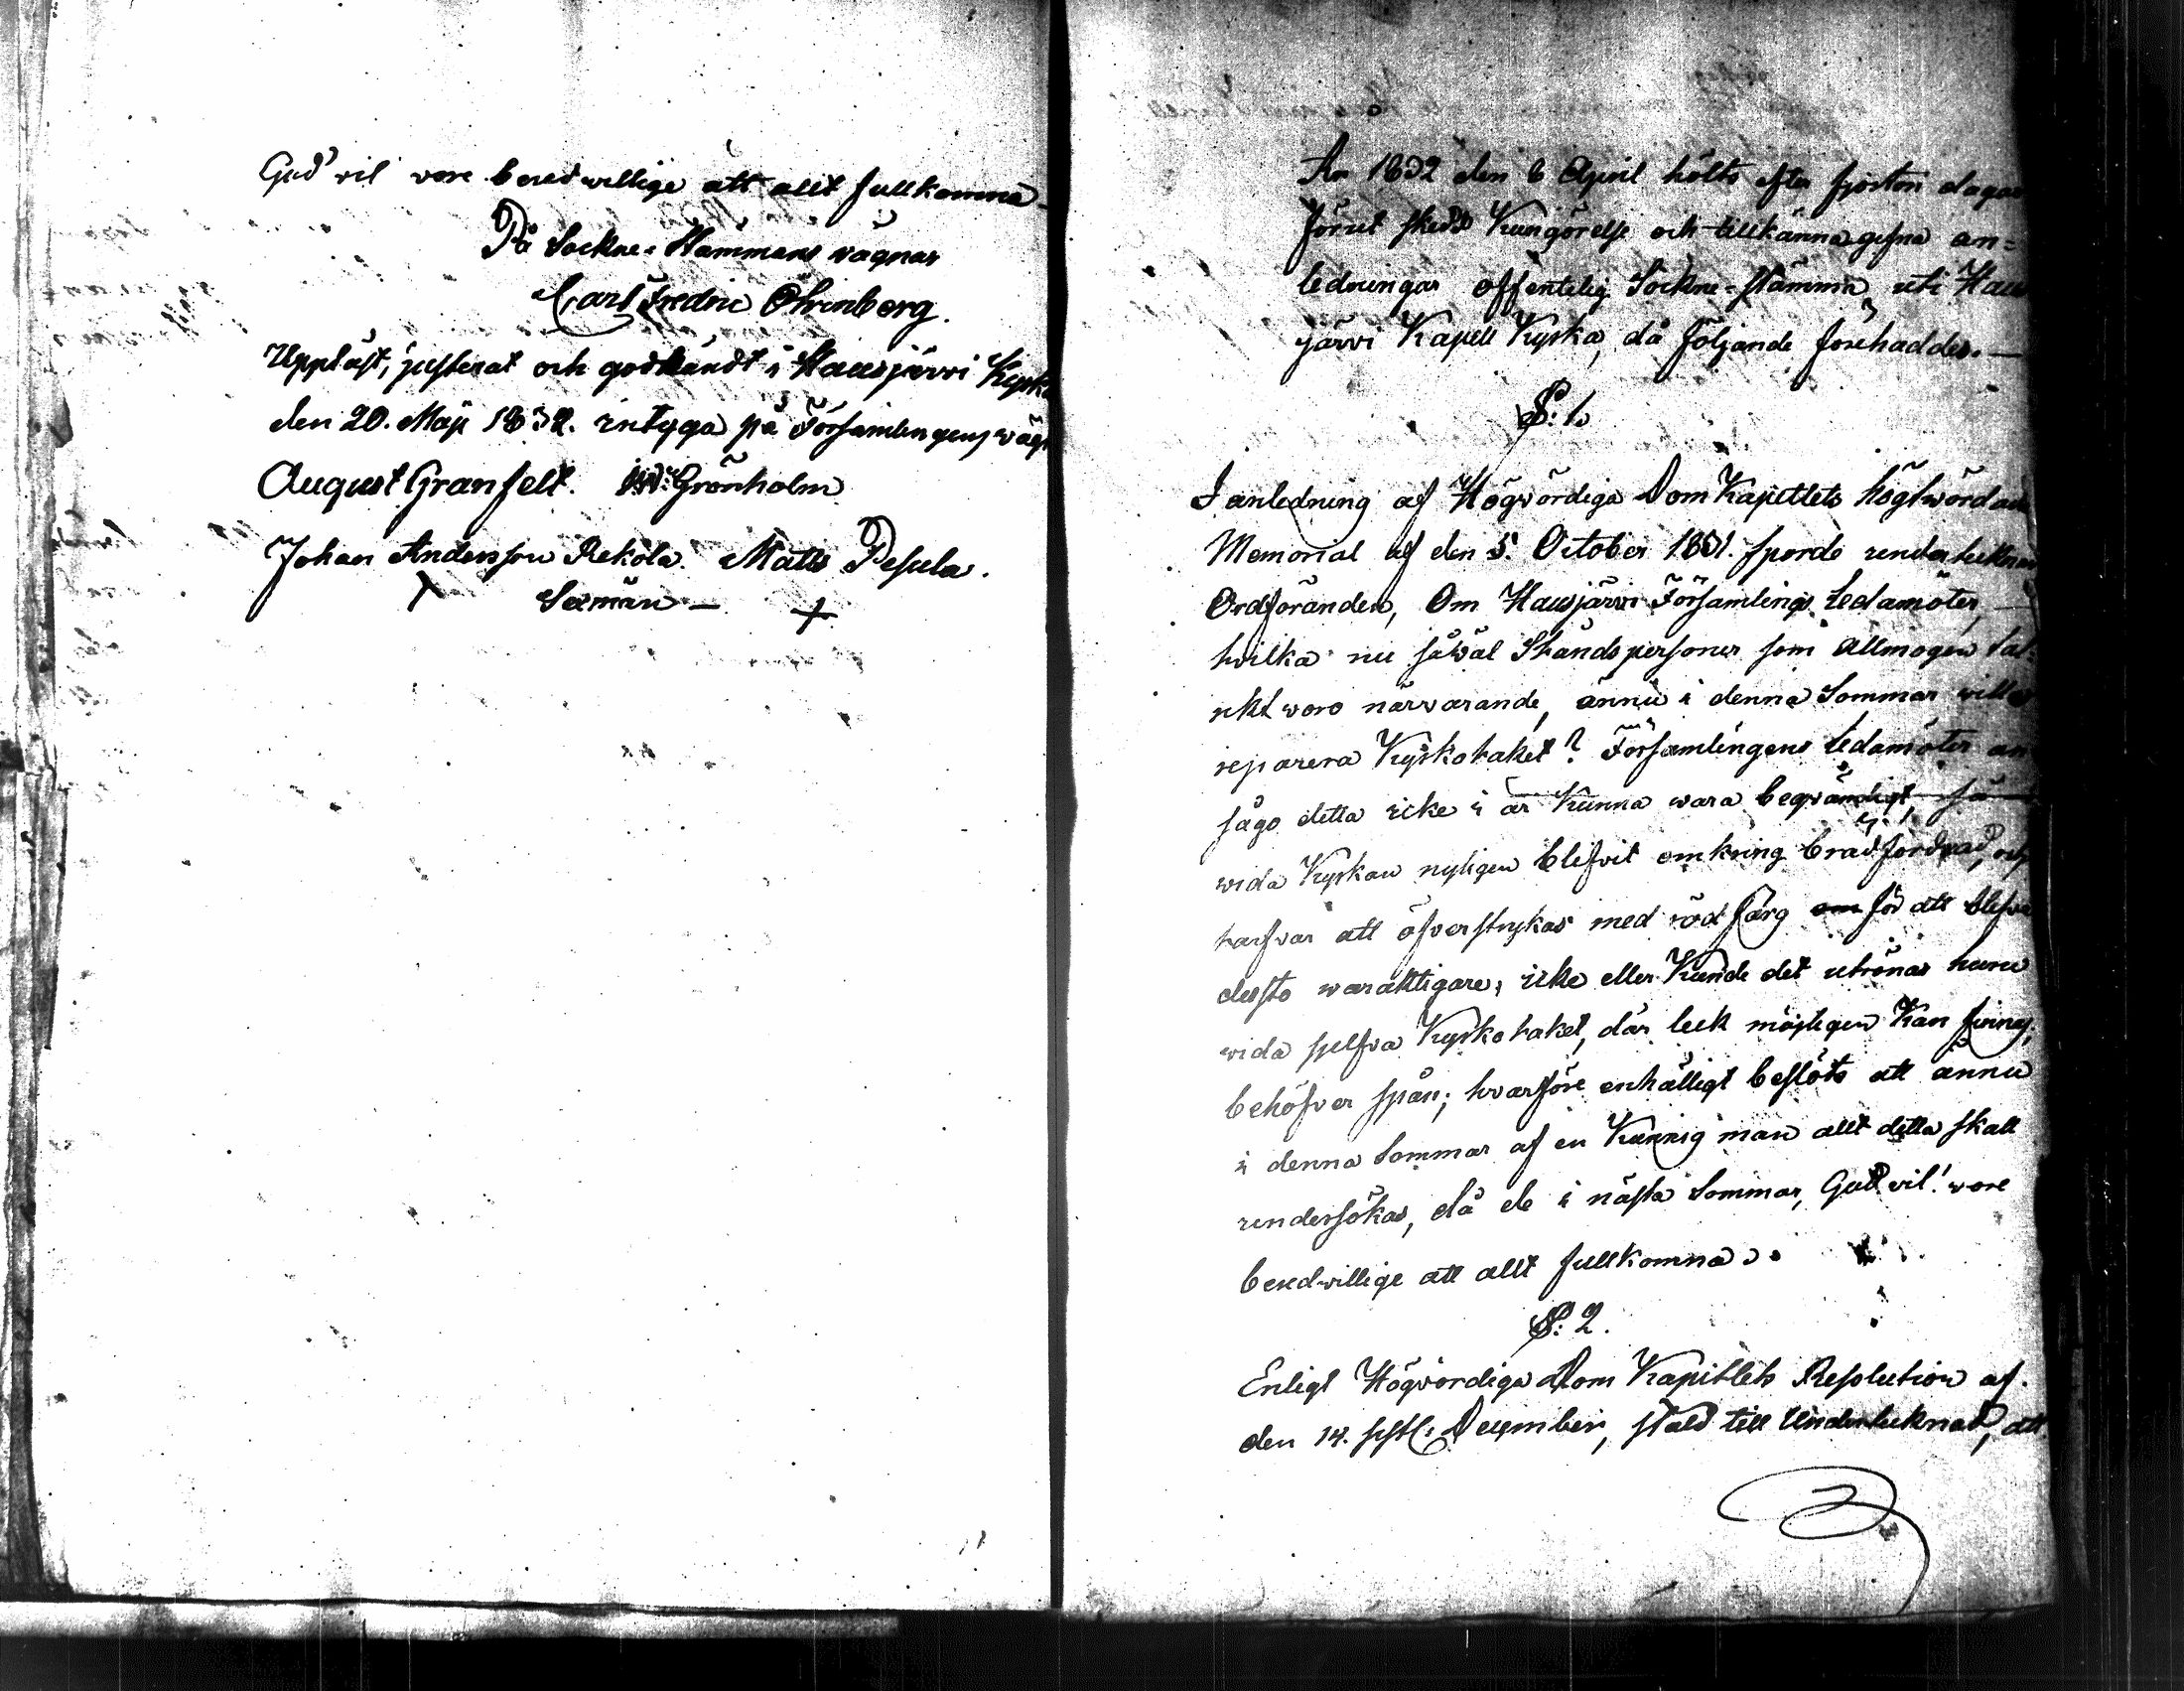 Gud vil vore beredwillige att allt fullkomna
På Sockne-Stämmans vägnar
Carl Fredric Öhrnberg.
Uppläst, justerat och godkändt i Hausjärvi Kyrka
den 20. Maji 1832. intyga på Församlingens wägn
August Granfelt. Grönholm
Johan Andersson Rekola. Matts Pesula.
Sexmän
År 1832 den 6 April hölts efter fjorton dagar
förut skedd Kungörelse och tillkännagifna an=
ledningar offentelig Sockne-stämma uti Haus
järvi Kapell Kyrka, då följande förehaddes.—
§: 1.
I anledning af Högvördiga Dom Kapitlets högtvördan
Memorial af den 5. October 1831. sporde undertecknad
Ordföranden, Om Hausjärvi Församlings Ledamöter,
hvilka nu såväl Ståndspersoner som Allmogen tal=
rikt woro närvarande, ännu i denna Sommar wille
reparera Kyrkotaket? Församlingens Ledamöter an
sågo detta icke i år Kunna wara beqvämligt, så
vida Kyrkan nyligen blefvit omkring brädfordrad, och
tarfvar att öfverstrykas med röd färg för att blefva
desto waraktigare; icke eller Kunde det utrönas huru
vida sjelfva Kyrkotaket, där leck möjligen Kan finnas,
behöfver spån; hvarföre enhälligt beslöts att ännu
i denna Sommar af en Kunnig man allt detta skall
undersökas, då de i nästa Sommar, Gud vil! vore
beredwillige att allt fullkomna.
§: 2.
Enligt Högvördiga Dom Kapitlets Resolution af
den 14. sistl: December, stäld till Undertecknad, att